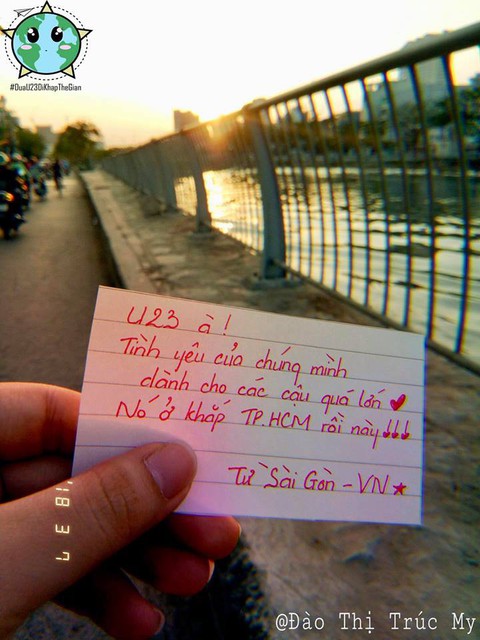 #DuaU23DiKhapTheGian
U23 à!
Tình yêu của chúng mình
dành cho các cậu quá lớn ♥
Nó ở khắp TP.HCM rồi này↓↓↓
Từ Sài Gòn - VN ★
@Đào Thị Trúc My